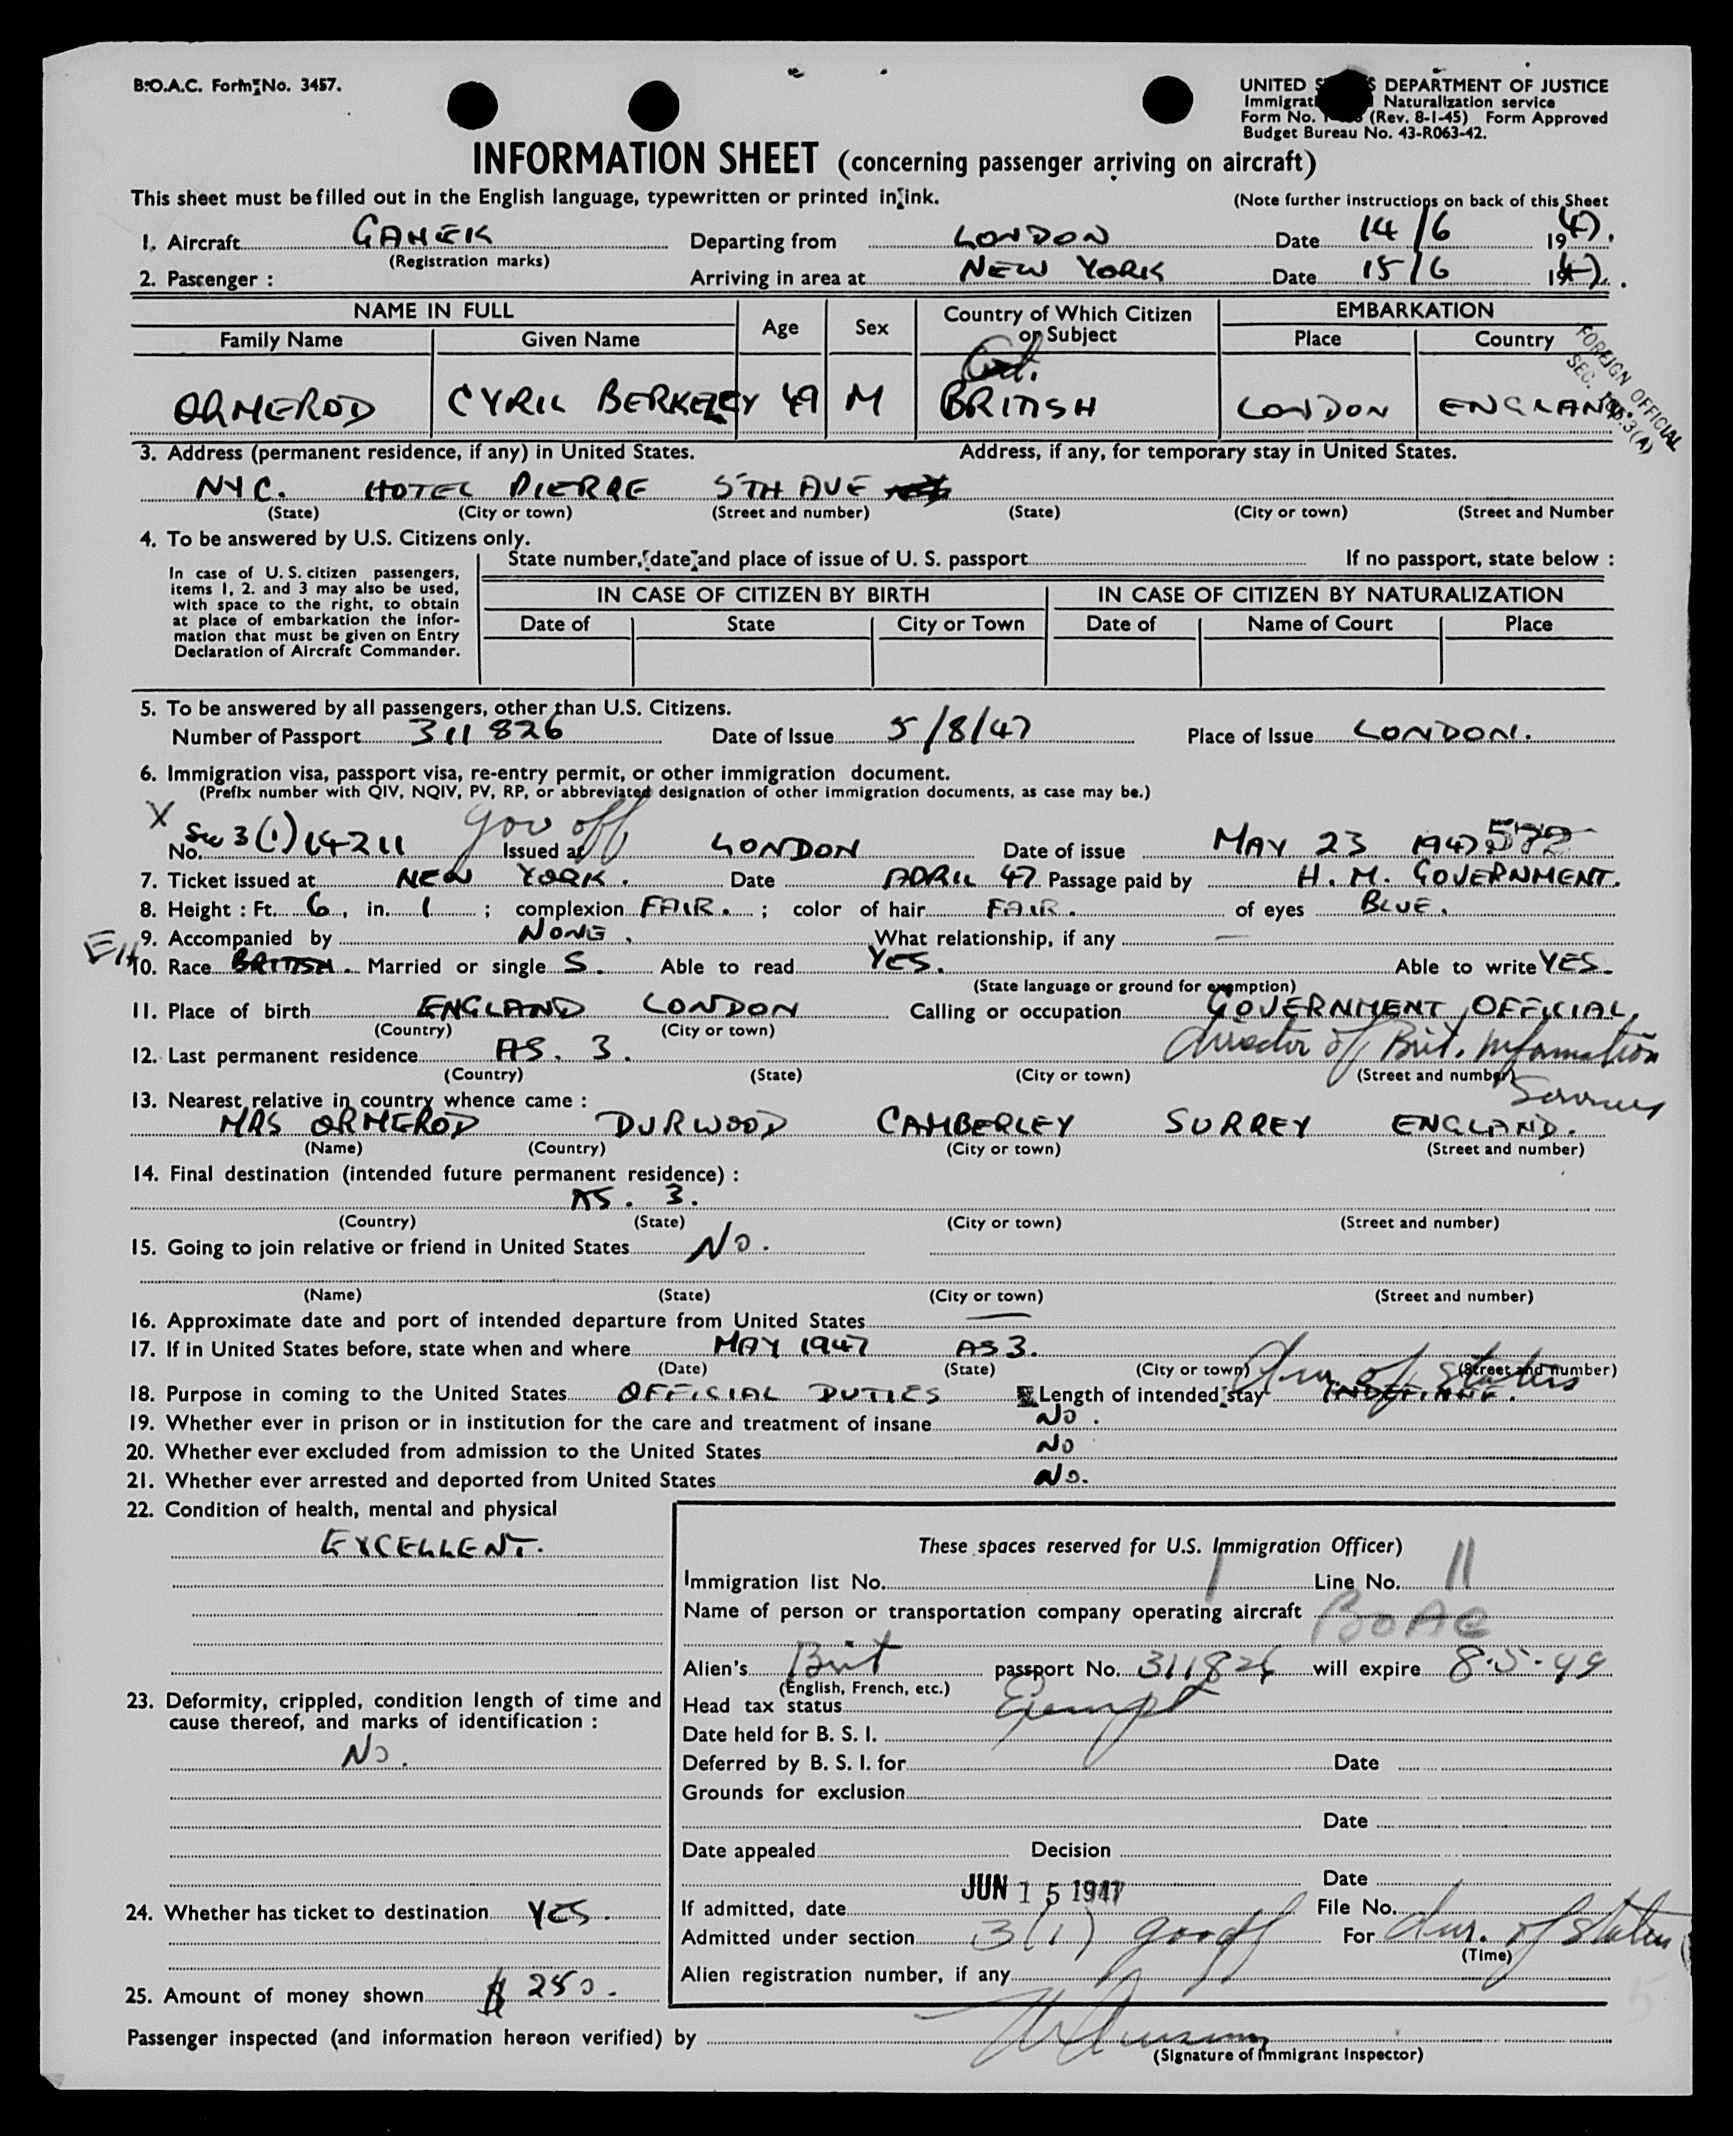 B.O.A.C. Form No. 3457.
UNITED S S DEPARTMENT OF JUSTICE
Immigrat Naturalization service
Form No. (Rev. 8-1-45) Form Approved
Budget Bureau No. 43-R063-42.
INFORMATION SHEET (concerning passenger arriving on aircraft)
This sheet must be filled out in the English language, typewritten or printed in ink. (Note further instructions on back of this Sheet
1. Aircraft GAHEK Departing from LONDON Date 14/6 1947.
(Registration marks)
2. Passenger : Arriving in area at NEW YORK Date 15/6 1947.
NAME IN FULL Age Sex Country of Which Citizen or Subject EMBARKATION
Family Name Given Name Place Country
FOREIGN OFFICIAL
SEC. 3(A)
ORMEROD CYRIL BERKELEY 49 M BRITISH LONDON ENGLAND.
3. Address (permanent residence, if any) in United States. Address, if any, for temporary stay in United States.
NYC. HOTEL PIERRE 5TH AVE
(State) (City or town) (Street and number) (State) (City or town) (Street and Number
4. To be answered by U.S. Citizens only.
State number, date and place of issue of U. S. passport If no passport, state below :
In case of U. S. citizen passengers,
items 1, 2. and 3 may also be used,
with space to the right, to obtain
at place of embarkation the infor-
mation that must be given on Entry
Declaration of Aircraft Commander.
IN CASE OF CITIZEN BY BIRTH IN CASE OF CITIZEN BY NATURALIZATION
Date of State City or Town Date of Name of Court Place
5. To be answered by all passengers, other than U.S. Citizens.
Number of Passport 311826 Date of Issue 5/8/47 Place of Issue LONDON.
6. Immigration visa, passport visa, re-entry permit, or other immigration document.
(Prefix number with QIV, NQIV, PV, RP, or abbreviated designation of other immigration documents, as case may be.)
X
No. Sec 3(1) 14211 gov off Issued at LONDON Date of issue MAY 23 1947 572
7. Ticket issued at NEW YORK. Date APRIL 47 Passage paid by H. M. GOVERNMENT.
8. Height : Ft. 6, in. 1 ; complexion FAIR. ; color of hair FAIR. of eyes BLUE.
9. Accompanied by NONE. What relationship, if any —
10. Race BRITISH. Married or single S. Able to read YES. Able to write YES.
(State language or ground for exemption)
11. Place of birth ENGLAND LONDON Calling or occupation GOVERNMENT OFFICIAL.
(Country) (City or town)
Director of Brit. Information
Services
12. Last permanent residence AS. 3.
(Country) (State) (City or town) (Street and number)
13. Nearest relative in country whence came :
MRS ORMEROD DURWOOD CAMBERLEY SURREY ENGLAND.
(Name) (Country) (City or town) (Street and number)
14. Final destination (intended future permanent residence) :
AS. 3.
(Country) (State) (City or town) (Street and number)
15. Going to join relative or friend in United States NO.
(Name) (State) (City or town) (Street and number)
16. Approximate date and port of intended departure from United States —
17. If in United States before, state when and where MAY 1947 AS 3.
(Date) (State) (City or town) (Street and number)
18. Purpose in coming to the United States OFFICIAL DUTIES Length of intended stay INDEFINITE. Dur. of status
19. Whether ever in prison or in institution for the care and treatment of insane NO.
20. Whether ever excluded from admission to the United States NO
21. Whether ever arrested and deported from United States NO.
22. Condition of health, mental and physical
EXCELLENT.
These spaces reserved for U.S. Immigration Officer)
Immigration list No. 1 Line No. 11
Name of person or transportation company operating aircraft BOAC
Alien's Brit passport No. 311826 will expire 8-5-49
(English, French, etc.)
23. Deformity, crippled, condition length of time and
cause thereof, and marks of identification :
NO.
Head tax status Exempt
Date held for B. S. I.
Deferred by B. S. I. for Date
Grounds for exclusion
Date
Date appealed Decision
Date
JUN 15 1947
If admitted, date File No.
24. Whether has ticket to destination YES.
Admitted under section 3(1) gov off For dur. of status
(Time)
Alien registration number, if any
25. Amount of money shown $ 250.
Passenger inspected (and information hereon verified) by
(Signature of Immigrant Inspector)